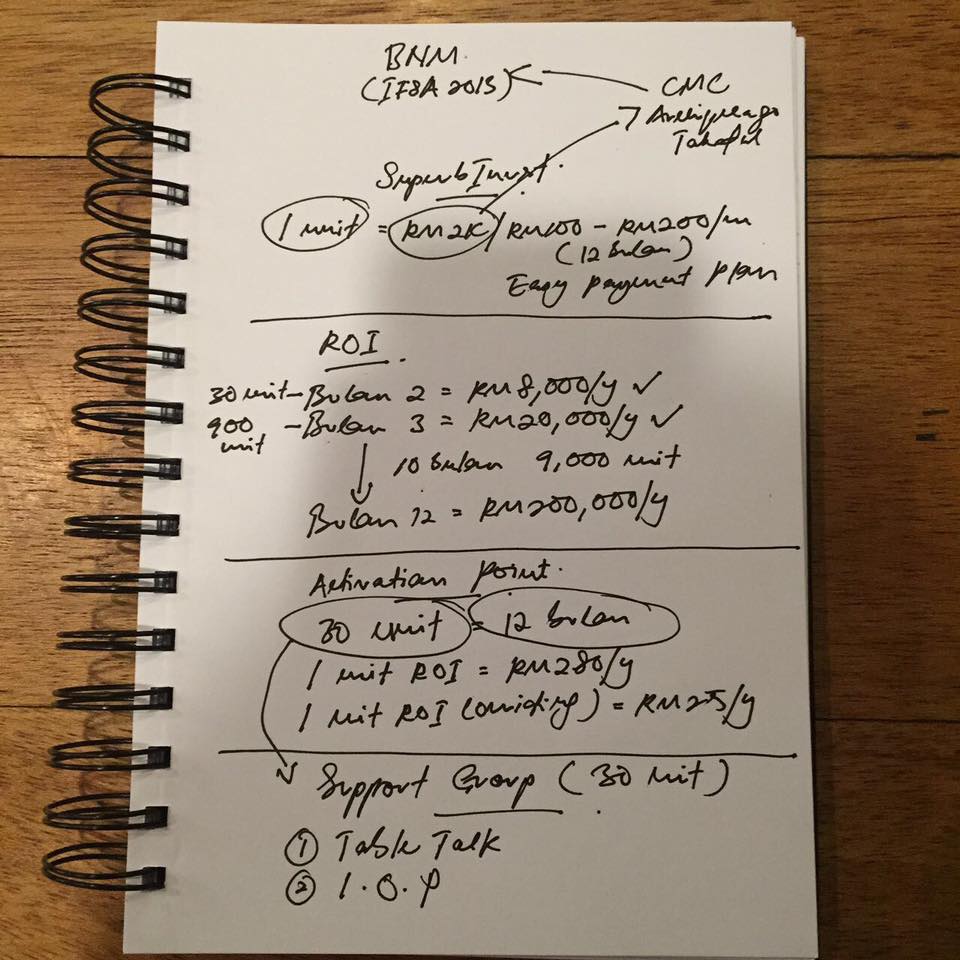 BNM.
(IFSA 2013)
CMC
Archipelago
Takaful
Superb Invest.
1 unit = RM2K/RM100 - RM200/m
(12 Bulan)
Easy payment plan
ROI
30 unit - Bulan 2 = RM8,000/y ✓
900 unit - Bulan 3 = RM20,000/y ✓
10 Bulan 9,000 unit
Bulan 12 = RM200,000/y
Activation point.
30 unit = 12 bulan
1 unit ROI = RM280/y
1 unit ROI = RM25/y
Support Group (30 unit)
① Table Talk
② 1.0.P